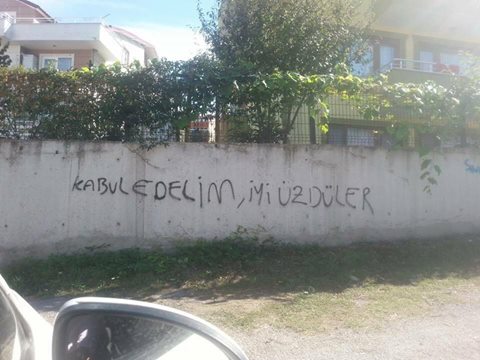 KABUL EDELİM, İYİ ÜZDÜLER